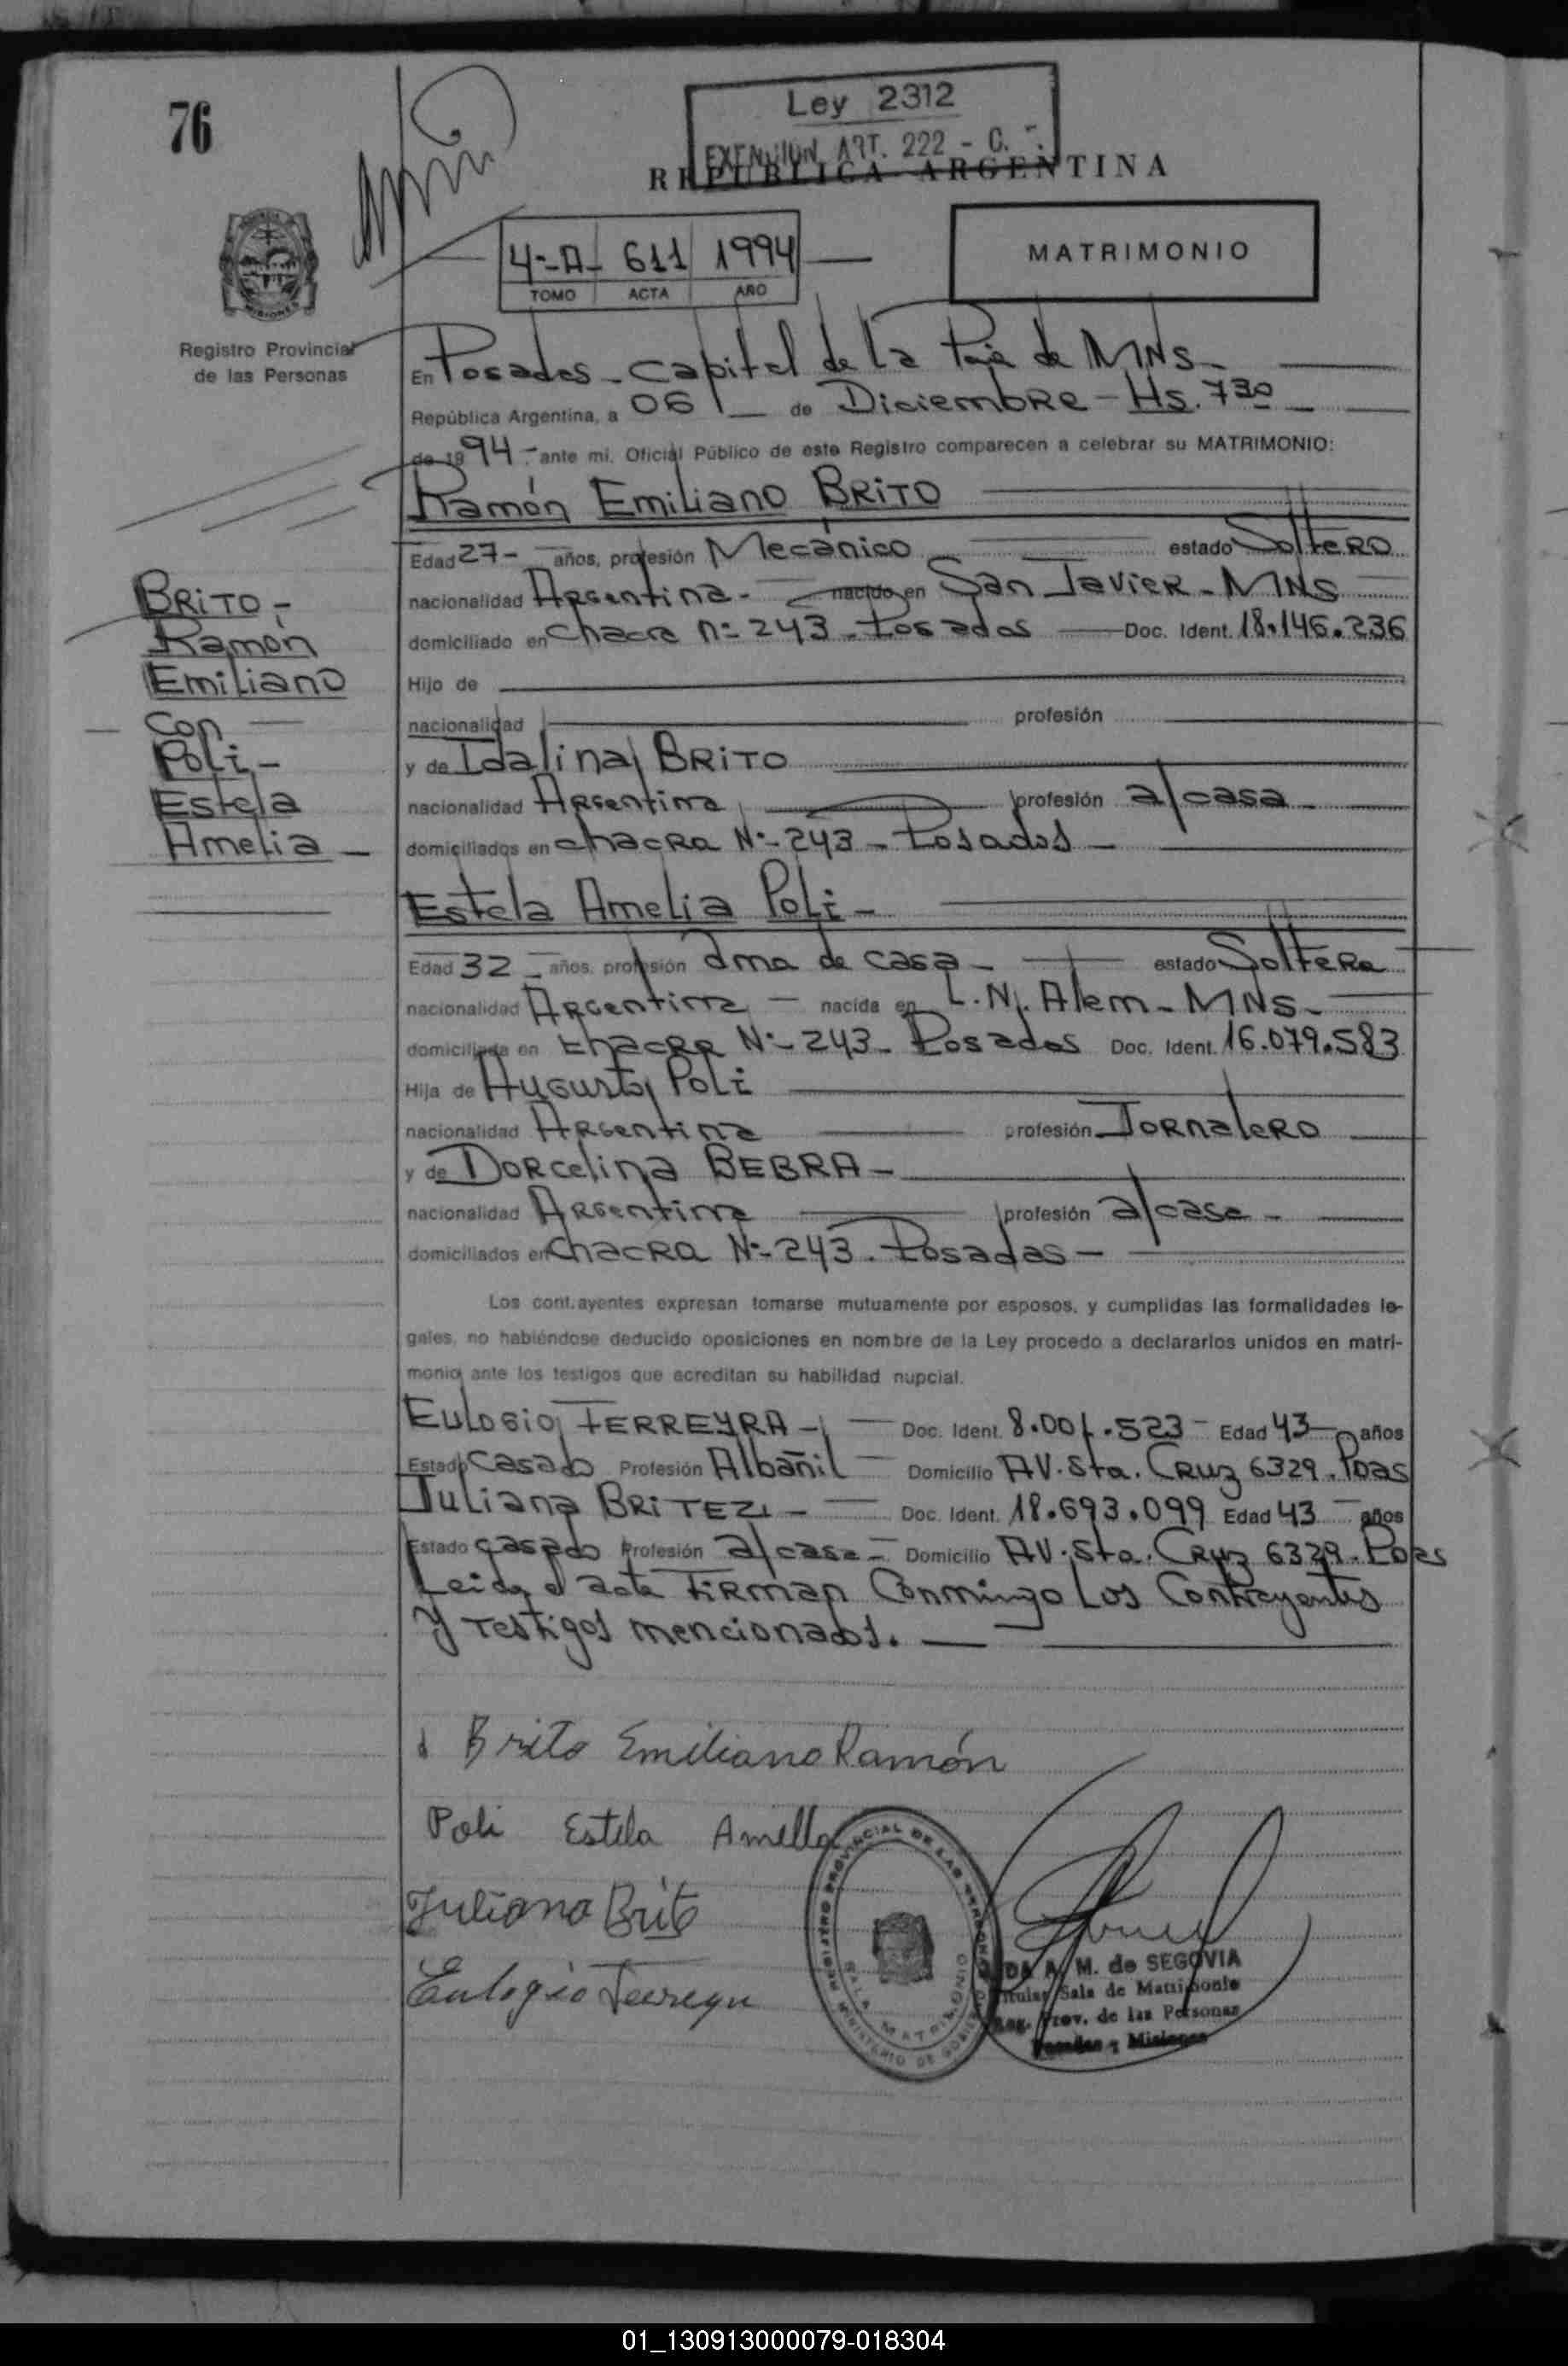 76
Ley 2312
EXENCION ART. 222 - C.
REPUBLICA ARGENTINA
4-A- 611 1994
TOMO ACTA AÑO
MATRIMONIO
MISIONES
Registro Provincial
de las Personas
En Posadas - Capital de la Pcia de MNS -
República Argentina, a 06 de Diciembre - Hs. 730
de 1994 - ante mí, Oficial Público de este Registro comparecen a celebrar su MATRIMONIO:
Ramón Emiliano BRITO
Edad 27 - años, profesión Mecánico estado Soltero
nacionalidad Argentina - nacido en San Javier - MNS
domiciliado en Chacra Nº 243 - Posadas Doc. Ident. 18.146.236
Hijo de
nacionalidad profesión
y de Idalina BRITO
nacionalidad Argentina profesión a/casa -
domiciliados en Chacra Nº 243 - Posadas -
BRITO -
Ramón
Emiliano
Con
Poli -
Estela
Amelia -
Estela Amelia Poli -
Edad 32 - años, profesión ama de casa - estado Soltera
nacionalidad Argentina - nacida en L.N. Alem - MNS -
domiciliada en Chacra Nº 243 - Posadas Doc. Ident. 16.079.583
Hija de Augusto Poli
nacionalidad Argentina profesión Jornalero
y de Dorcelina BEBRA -
nacionalidad Argentina profesión a/casa -
domiciliados en Chacra Nº 243 . Posadas -
Los contrayentes expresan tomarse mutuamente por esposos, y cumplidas las formalidades le-
gales, no habiéndose deducido oposiciones en nombre de la Ley procedo a declararlos unidos en matri-
monio ante los testigos que acreditan su habilidad nupcial.
Eulogio FERREYRA - Doc. Ident. 8.001.523 - Edad 43 años
Estado Casado Profesión Albañil Domicilio AV. Sta. Cruz 6329 . Pdas
Juliana BRITEZ - Doc. Ident. 18.693.099 Edad 43 años
Estado casado Profesión a/casa - Domicilio AV. Sta. Cruz 6329 . Pdas
Leida el acta firman Conmingo Los Contrayentes
Y Testigos mencionados. -
Brito Emiliano Ramón
Poli Estela Amelia
Juliana Brit
Eulogio Ferreyra
REGISTRO PROVINCIAL DE LAS PERSONAS
SALA MATRIMONIO
MINISTERIO DE GOBIERNO
A. M. de SEGOVIA
Titular Sala de Matrimonio
Reg. Prov. de las Personas
Posadas - Misiones
01_130913000079-018304